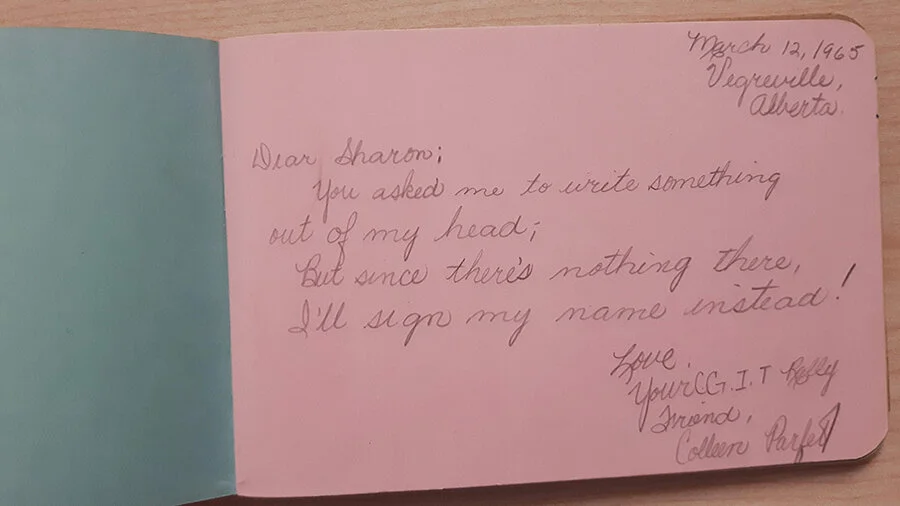 March 12, 1965
Vegreville,
Alberta.
Dear Sharon;
You asked me to write something
out of my head;
But since there's nothing there,
I'll sign my name instead!
Love.
Your C.G.I.T
Friend,
Colleen